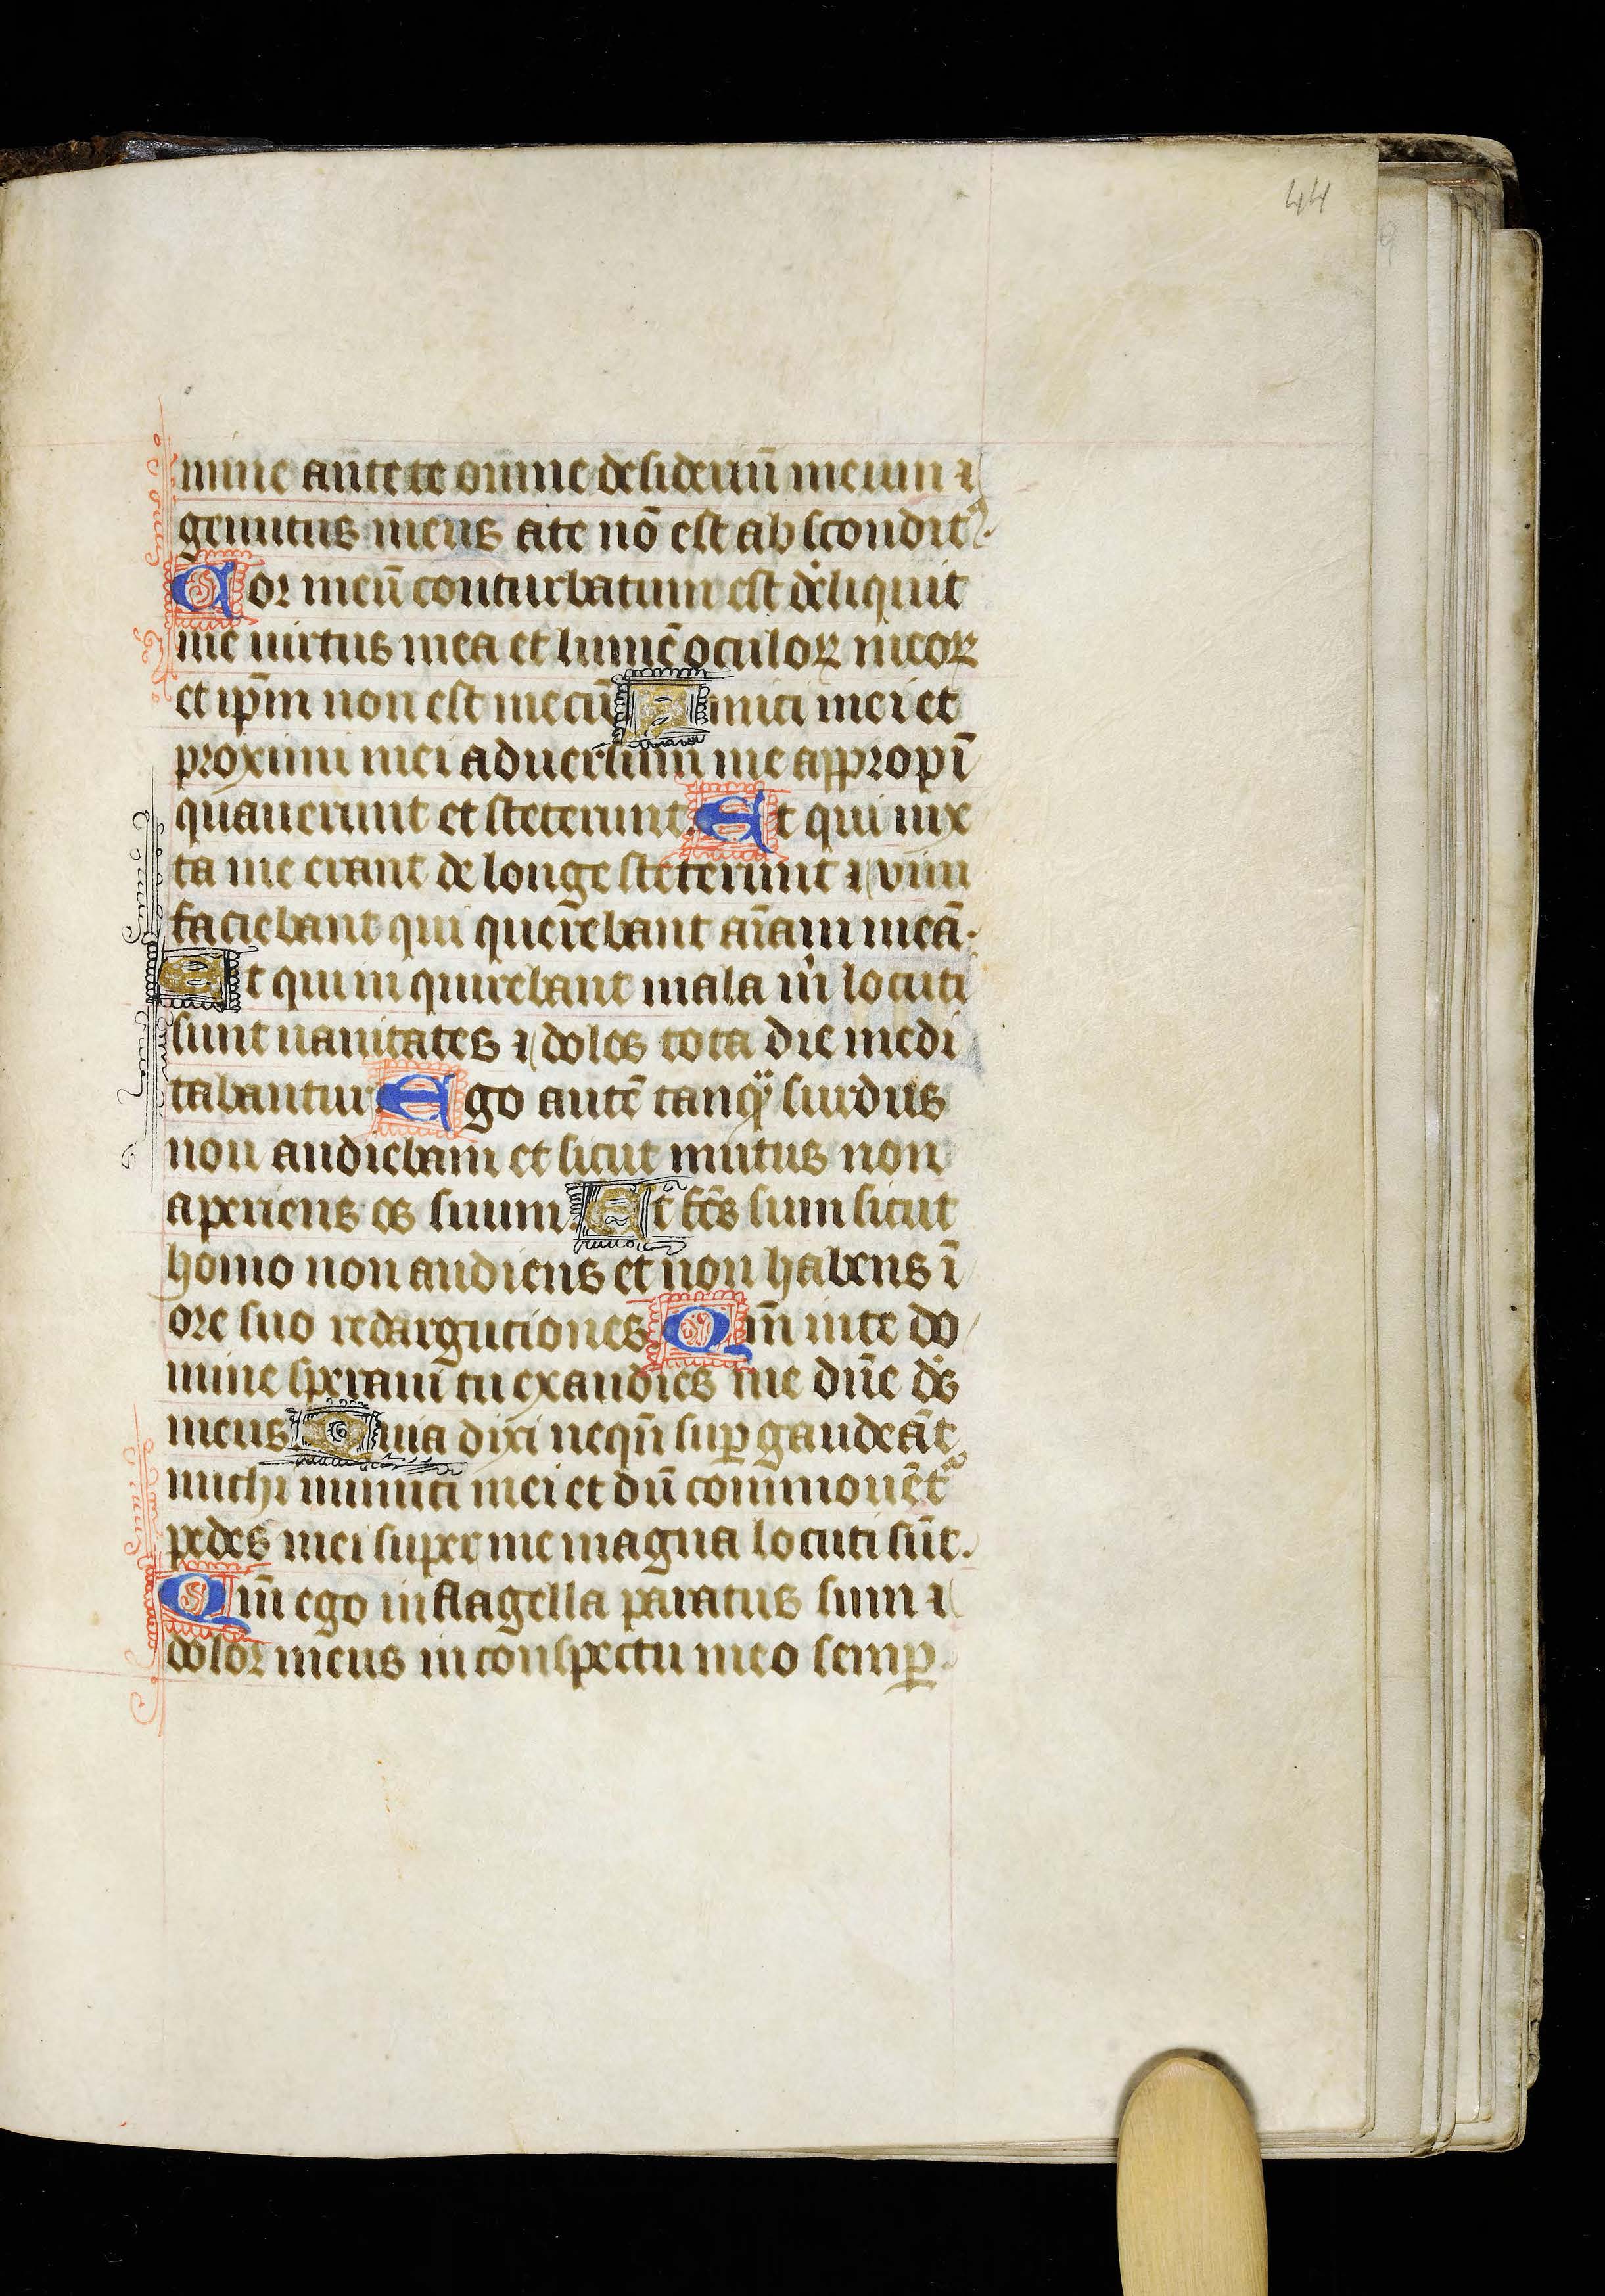 44
mine ante te omne desideriū meum ⁊
gemitus meus a te nō est absconditꝰ.
Cor meū conturbatum est dereliquit
me uirtus mea et lumē oculoꝝ meoꝝ
et ip̄m non est mecū Amici mei et
proximi mei aduersum me appropī
quauerunt et steterunt. Et qui iux
ta me erant de longe steterunt ⁊ vim
faciebant qui querebant aīam meā.
Et qui inquirebant mala m̄ locuti
sunt uanitates ⁊ dolos tota die medi
tabantur Ego autē tanqͣ surdus
non audiebam et sicut mutus non
aperiens os suum. Et fc̄s sum sicut
homo non audiens et non habens ī
ore suo redargutiones Qm̄ in te do
mine speraui tu exaudies me dn̄e ds̄
meus Quia dixi nequn̄ suꝑ gaudeāt
michi inimici mei et dū commouēt᷑
pedes mei super me magna locuti sūt.
Qm̄ ego in flagella paratus sum ⁊
dolor meus in conspectu meo semꝑ.